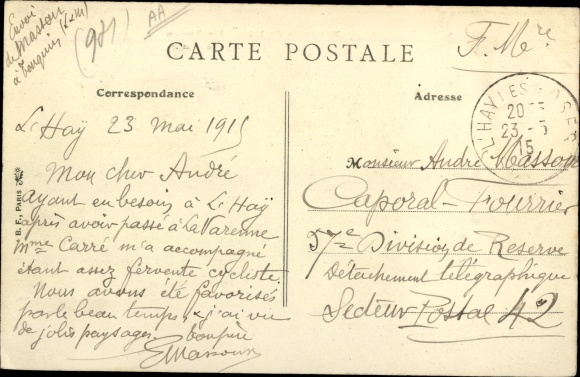 Envoi
de Masson
à Tonquin
(981)
AA
CARTE POSTALE
F. Mre
Correspondance
Adresse
L'HAY LES ROSES
23-5
15
L'Haÿ 23 mai 1915
Mon cher André
ayant eu besoin à L'Haÿ
après avoir passé à La Varenne
Mme Carré m'a accompagné
étant assez fervente cycliste.
Nous avons été favorisés
par le beau temps & j'ai vu
de jolis paysages. bon père
EMasson
B. F., PARIS
Monsieur André Masson
Caporal-Fourrier
57e Division de Reserve
Détachement télégraphique
Secteur Postal 42